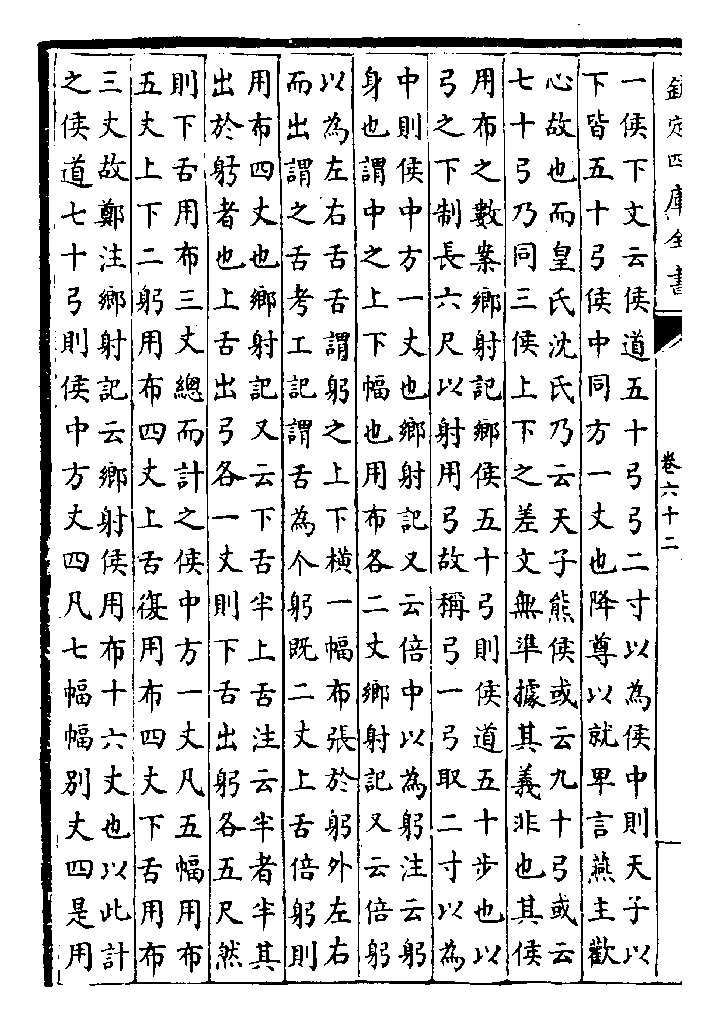 欽定四庫全書
卷六十二
一侯下文云侯道五十弓弓二寸以為侯中則天子以
下皆五十弓侯中同方一丈也降尊以就卑言燕主歡
心故也而皇氏沈氏乃云天子熊侯或云九十弓或云
七十弓乃同三侯上下之差文無準據其義非也其侯
用布之數案鄉射記鄉侯五十弓則侯道五十步也以
弓之下制長六尺以射用弓故稱弓一弓取二寸以為
中則侯中方一丈也鄉射記又云倍中以為躬注云躬
身也謂中之上下幅也用布各二丈鄉射記又云倍躬
以為左右舌舌謂躬之上下橫一幅布張於躬外左右
而出謂之舌考工記謂舌為个躬既二丈上舌倍躬則
用布四丈也鄉射記又云下舌半上舌注云半者半其
出於躬者也上舌出弓各一丈則下舌出躬各五尺然
則下舌用布三丈總而計之侯中方一丈凡五幅用布
五丈上下二躬用布四丈上舌復用布四丈下舌用布
三丈故鄭注鄉射記云鄉射侯用布十六丈也以此計
之侯道七十弓則侯中方丈四凡七幅幅別丈四是用